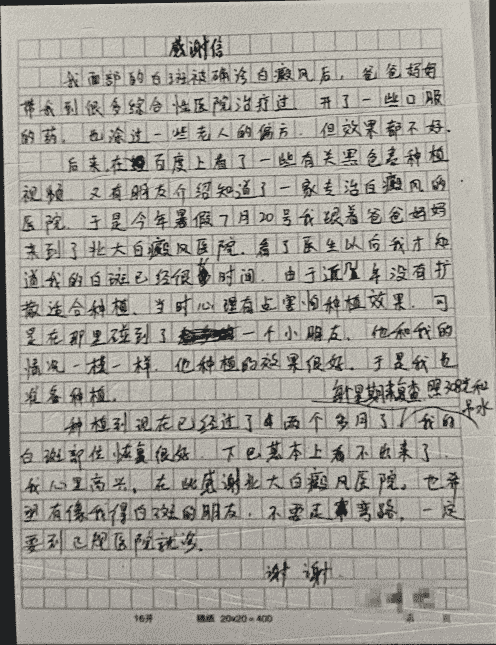 感谢信
我面部的白斑被确诊白癜风后，爸爸妈妈
带我到很多综合性医院治疗过 开了一些口服
的药，也涂过一些老人的偏方，但效果都不好.
后来，在百度上看了一些有关黑色素种植
视频 又有朋友介绍知道了一家专治白癜风的
医院. 于是今年暑假7月20号我跟着爸爸妈妈
来到了北大白癜风医院. 看了医生以后我才知
道我的白斑已经很多时间. 由于近年没有扩
散适合种植. 当时心理有点害怕种植效果. 可
是在那里碰到了一个小朋友. 他和我的
情况一模一样. 他种植的效果很好. 于是我也
准备种植.
每星期来复查 照308光和
吊水
种植到现在已经过了两个多月了 我的
白斑部位恢复很好. 下巴基本上看不出来了.
我心里高兴. 在此感谢北大白癜风医院. 也希
望有像我得白斑的朋友. 不要走弯路. 一定
要到正规医院就诊.
谢 谢.
16开 20×20=400 页